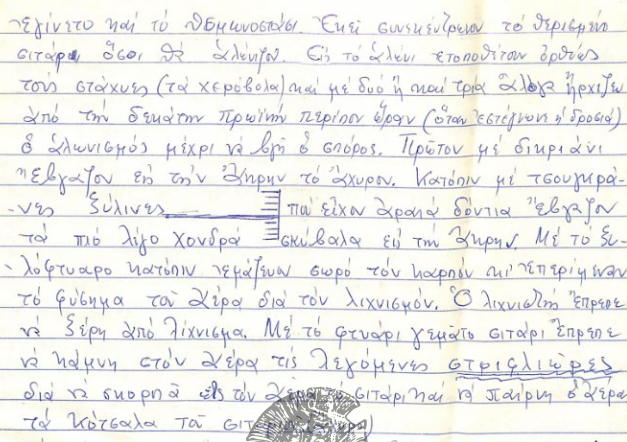 ἐγίνετο καί τό θεμωνοστάσι. Ἐκεῖ συνεκέντρωνον τό θερισμένο
σιτάρι ὅσοι θά ἁλώνιζον. Εἰς τό ἁλώνι ἐτοποθέτουν ὀρθίως
τούς στάχυες (τά χερόβολα) καί μέ δυό ἤ καί τρία ἄλογα ἤρχιζεν
ἀπό τήν δεκάτην πρωϊνήν περίπου ὥραν (ὅταν ἐστέγνωνε ἡ δροσιά)
ὁ ἁλωνισμός μέχρι νά βγῆ ὁ σπόρος. Πρῶτον μέ δικριάνι
ἔβγαζον εἰς τήν ἄκρην τό ἄχυρον. Κατόπιν μέ τσουγκρά-
-νες ξύλινες πού εἶχον ἀραιά δόντια ἔβγαζον
τά πιό λίγο χονδρά σκύβαλα εἰς τήν ἄκρην. Μέ τό ξυ-
λόφτυαρο κατόπιν ἐμάζευαν σωρό τόν καρπόν κι' ἐπερίμεναν
τό φύσημα τοῦ ἀέρα διά τόν λιχνισμόν. Ὁ λιχνιστής ἔπρεπε
νά ξέρη ἀπό λίχνισμα. Μέ τό φτυάρι γεμᾶτο σιτάρι ἔπρεπε
νά κάμνη στόν ἀέρα τίς λεγόμενες στριφλιῶρες
διά νά σκορπᾶ εἰς τόν ἀέρα τό σιτάρι καί νά παίρνη ὁ ἀέρας
τά κότσαλα τοῦ